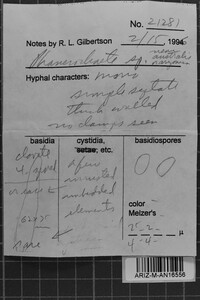 No. 21281
Notes by R. L. Gilbertson 2/15 1996
Phanerochaete sp.
Hyphal characters: mono
simple septate
thick walled
no clamps seen
basidia
cystidia, setae, etc.
basidiospores
clavate
4-spored
a few
encrusted
imbedded
elements
rare
color
Melzer's
μ
ARIZ-M-AN16556